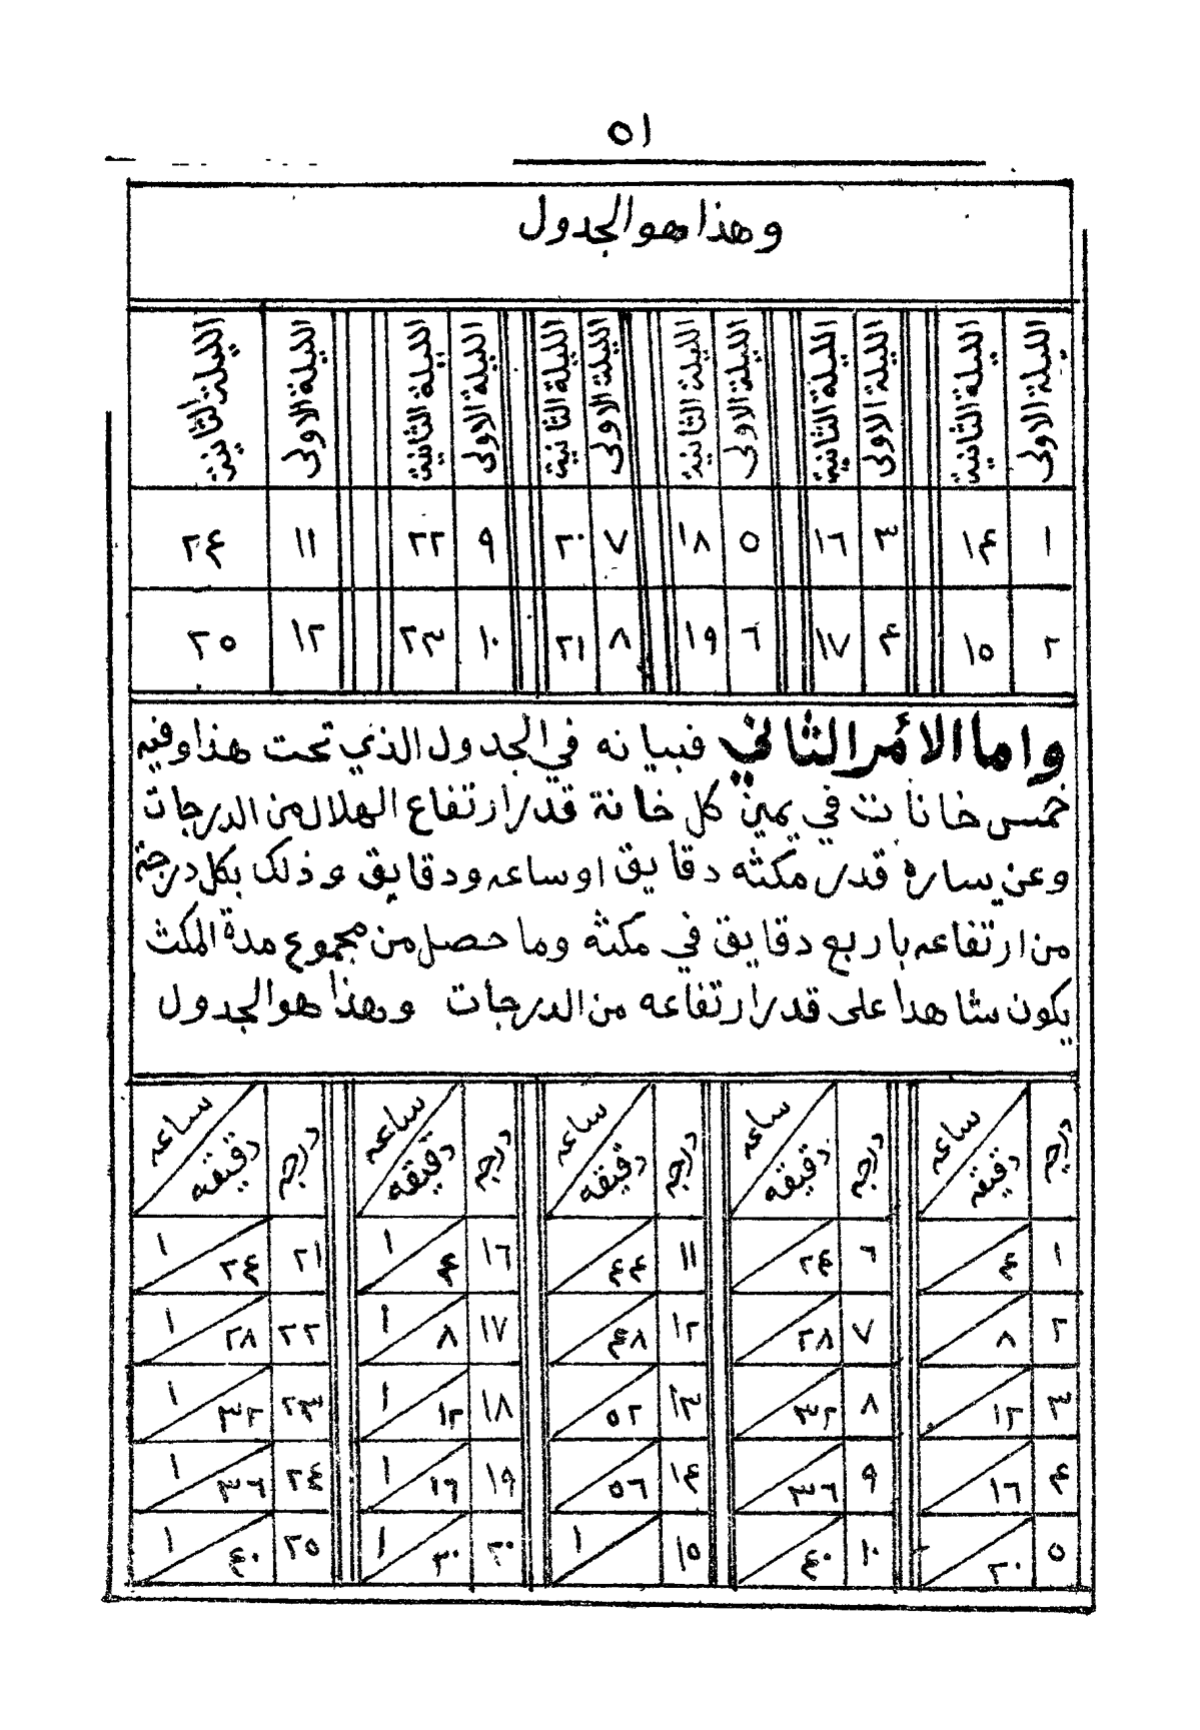 ٥١
وهذا هو الجدول
الليلة الاولى الليلة الثانية الليلة الاولى الليلة الثانية الليلة الاولى الليلة الثانية الليلة الاولى الليلة الثانية الليلة الاولى الليلة الثانية الليلة الاولى الليلة الثانية
١ ١٤ ٣ ١٦ ٥ ١٨ ٧ ٢٠ ٩ ٢٢ ١١ ٢٤
٢ ١٥ ٤ ١٧ ٦ ١٩ ٨ ٢١ ١٠ ٢٣ ١٢ ٢٥
واما الأمر الثاني فبيانه في الجدول الذي تحت هذا وفيه
خمس خانات في يمين كل خانة قدر ارتفاع الهلال من الدرجات
وعن يساره قدر مكثه دقايق او ساعه ودقايق وذلك بكل درجة
من ارتفاعه باربع دقايق في مكثه وما حصل من مجموع مدة المكث
يكون شاهدا على قدر ارتفاعه من الدرجات وهذا هو الجدول
درجه ساعه دقيقه درجه ساعه دقيقه درجه ساعه دقيقه درجه ساعه دقيقه درجه ساعه دقيقه
١ ٤ ٦ ٢٤ ١١ ٤٤ ١٦ ١ ٤ ٢١ ١ ٢٤
٢ ٨ ٧ ٢٨ ١٢ ٤٨ ١٧ ١ ٨ ٢٢ ١ ٢٨
٣ ١٢ ٨ ٣٢ ١٣ ٥٢ ١٨ ١ ١٢ ٢٣ ١ ٣٢
٤ ١٦ ٩ ٣٦ ١٤ ٥٦ ١٩ ١ ١٦ ٢٤ ١ ٣٦
٥ ٢٠ ١٠ ٤٠ ١٥ ١ ٢٠ ١ ٣٠ ٢٥ ١ ٤٠